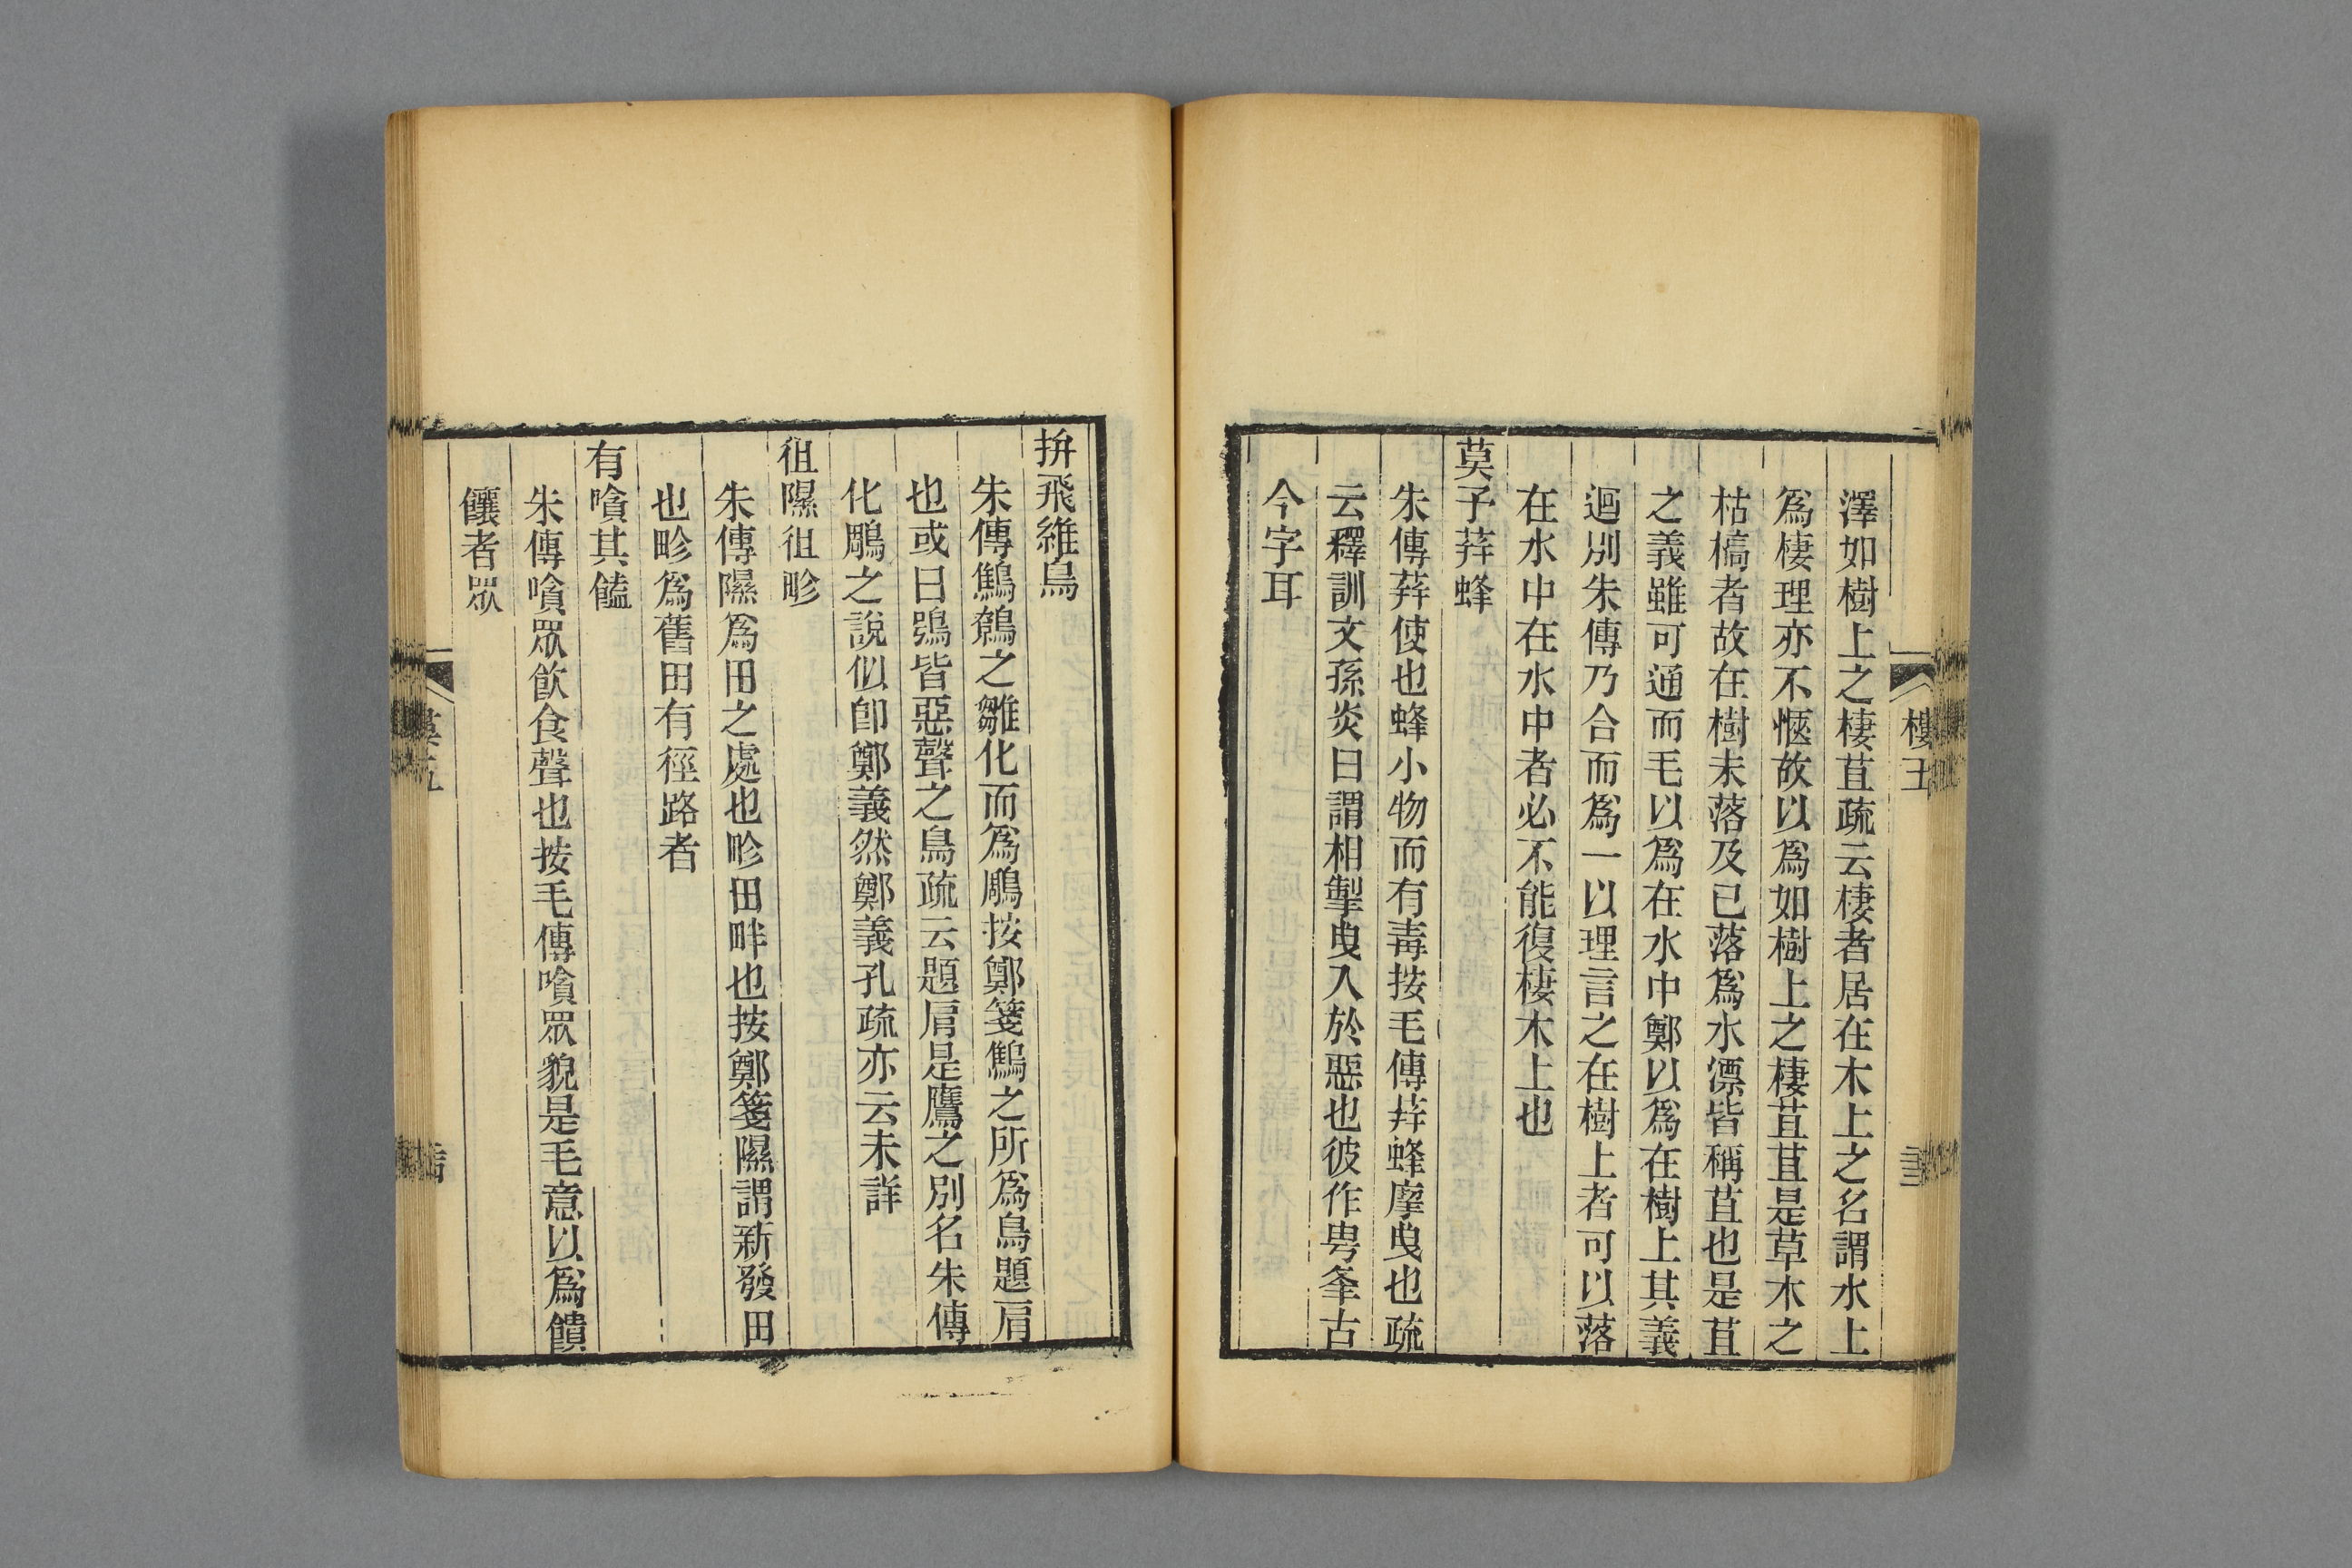 澤如樹上之棲苴疏云棲者居在木上之名謂水上
爲棲理亦不愜故以爲如樹上之棲苴苴是草木之
枯槁者故在樹未落及已落爲水漂皆稱苴也是苴
之義雖可通而毛以爲在水中鄭以爲在樹上其義
迴別朱傳乃合而爲一以理言之在樹上者可以落
在水中在水中者必不能復棲木上也
莫予荓蜂
朱傳荓使也蜂小物而有毒按毛傳荓蜂摩曳也疏
云釋訓文孫炎曰謂相掣曳入於惡也彼作甹夆古
今字耳
拚飛維鳥
朱傳鷦鷯之雛化而爲鵰按鄭箋鷦之所爲鳥題肩
也或曰鴞皆惡聲之鳥疏云題肩是鷹之別名朱傳
化鵰之說似卽鄭義然鄭義孔疏亦云未詳
徂隰徂畛
朱傳隰爲田之處也畛田畔也按鄭箋隰謂新發田
也畛爲舊田有徑路者
有嗿其饁
朱傳嗿眾飮食聲也按毛傳嗿眾貌是毛意以爲饋
饟者眾